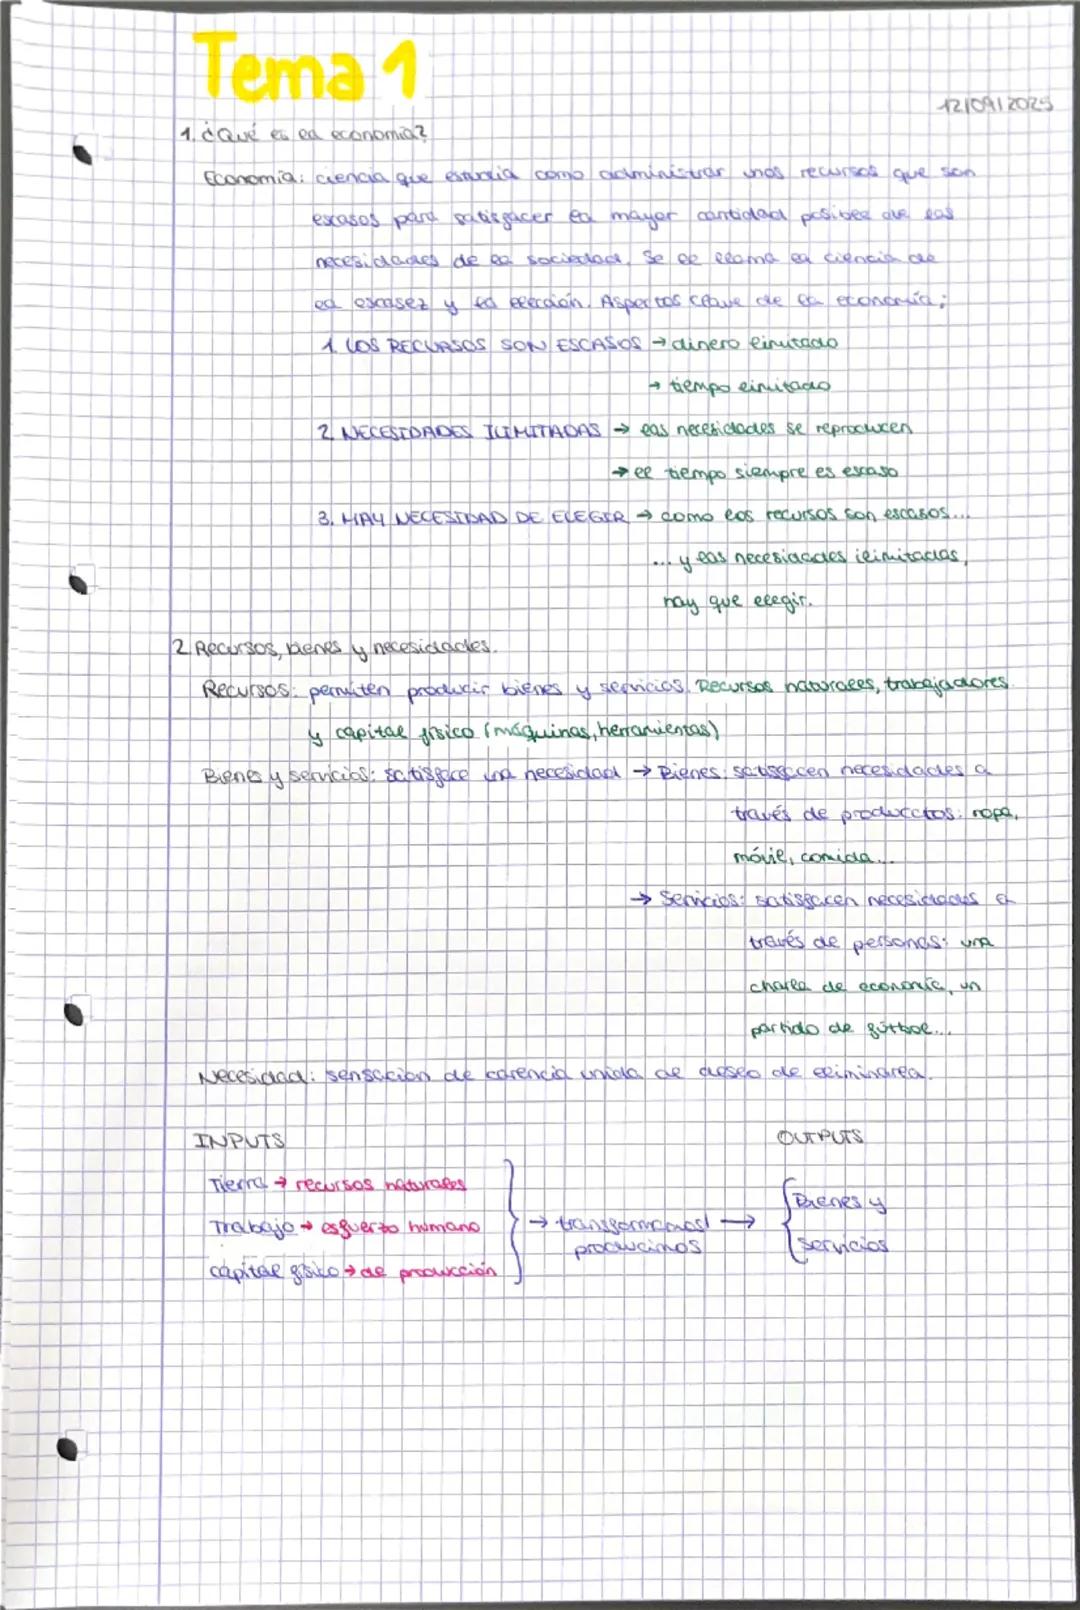 Tema 1
12/09/2025
1. ¿Qué es la economía?
Economía: ciencia que estudia como administrar unos recursos que son
escasos para satisfacer la mayor cantidad posible de las
necesidades de la sociedad. Se le llama la ciencia de
la escasez y la elección. Aspectos clave de la economía:
1. LOS RECURSOS SON ESCASOS → dinero limitado
→ tiempo limitado
2. NECESIDADES ILIMITADAS → las necesidades se reproducen
→ el tiempo siempre es escaso
3. HAY NECESIDAD DE ELEGIR → como los recursos son escasos...
... y las necesidades ilimitadas,
hay que elegir.
2. Recursos, bienes y necesidades.
Recursos: permiten producir bienes y servicios. Recursos naturales, trabajadores
y capital físico (máquinas, herramientas)
Bienes y servicios: satisface una necesidad → Bienes: satisfacen necesidades a
través de producctos: ropa,
móvil, comida...
→ Servicios: satisfacen necesidades a
través de personas: una
charla de economía, un
partido de fútbol...
Necesidad: sensación de carencia unida de deseo de eliminarla.
INPUTS OUTPUTS
Tierra → recursos naturales
Trabajo → esfuerzo humano → transformamos/ → Bienes y
producimos servicios
capital físico → de producción